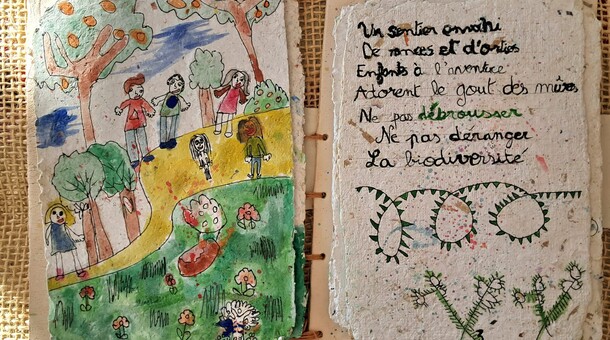 Un sentier envahi
De ronces et d'orties
Enfants à l'aventure
Adorent le gout des mûres
Ne pas débrousser
Ne pas déranger
La biodiversité